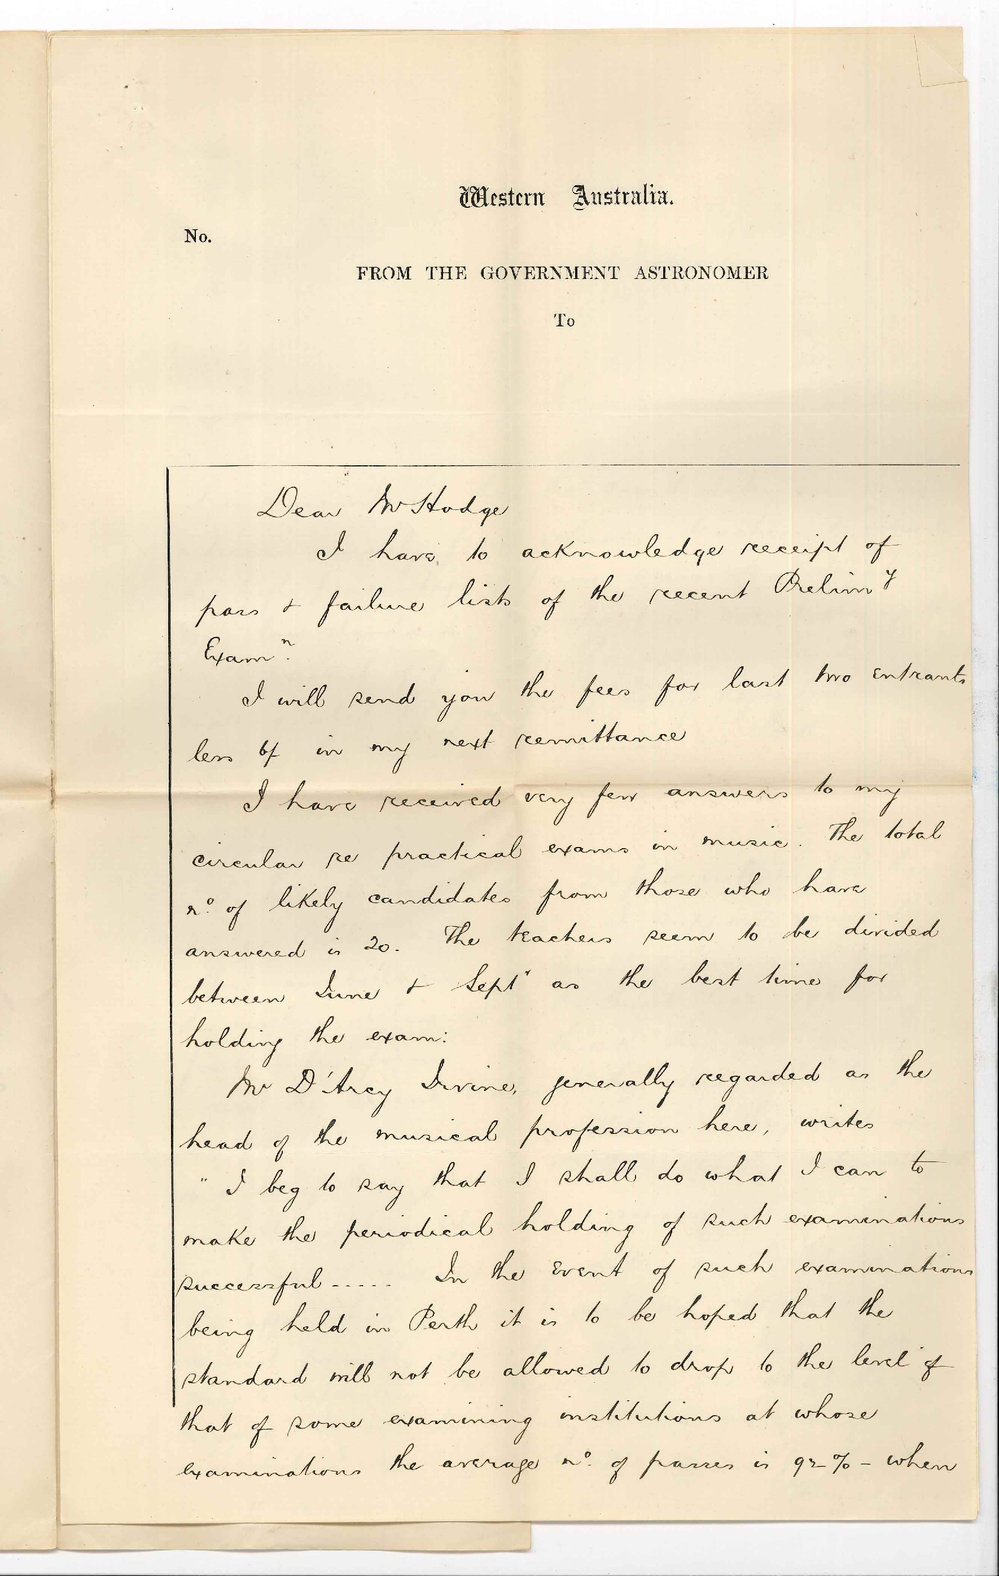 Western Australia.
No.
FROM THE GOVERNMENT ASTRONOMER
To
Dear Mr Hodge
I have to acknowledge receipt of
pass & failure lists of the recent Prelimy
Examn.
I will send you the fees for last two entrants
less 6/ in my next remittance
I have received very few answers to my
circular re practical exams in music. The total
no. of likely candidates from those who have
answered is 20. The teachers seem to be divided
between June & Septr as the best time for
holding the exam:
Mr D'Arcy Irvine, generally regarded as the
head of the musical profession here, writes
"I beg to say that I shall do what I can to
make the periodical holding of such examinations
successful ----- In the event of such examinations
being held in Perth it is to be hoped that the
standard will not be allowed to drop to the level of
that of some examining institutions at whose
examinations the average no. of passes is 92% - when